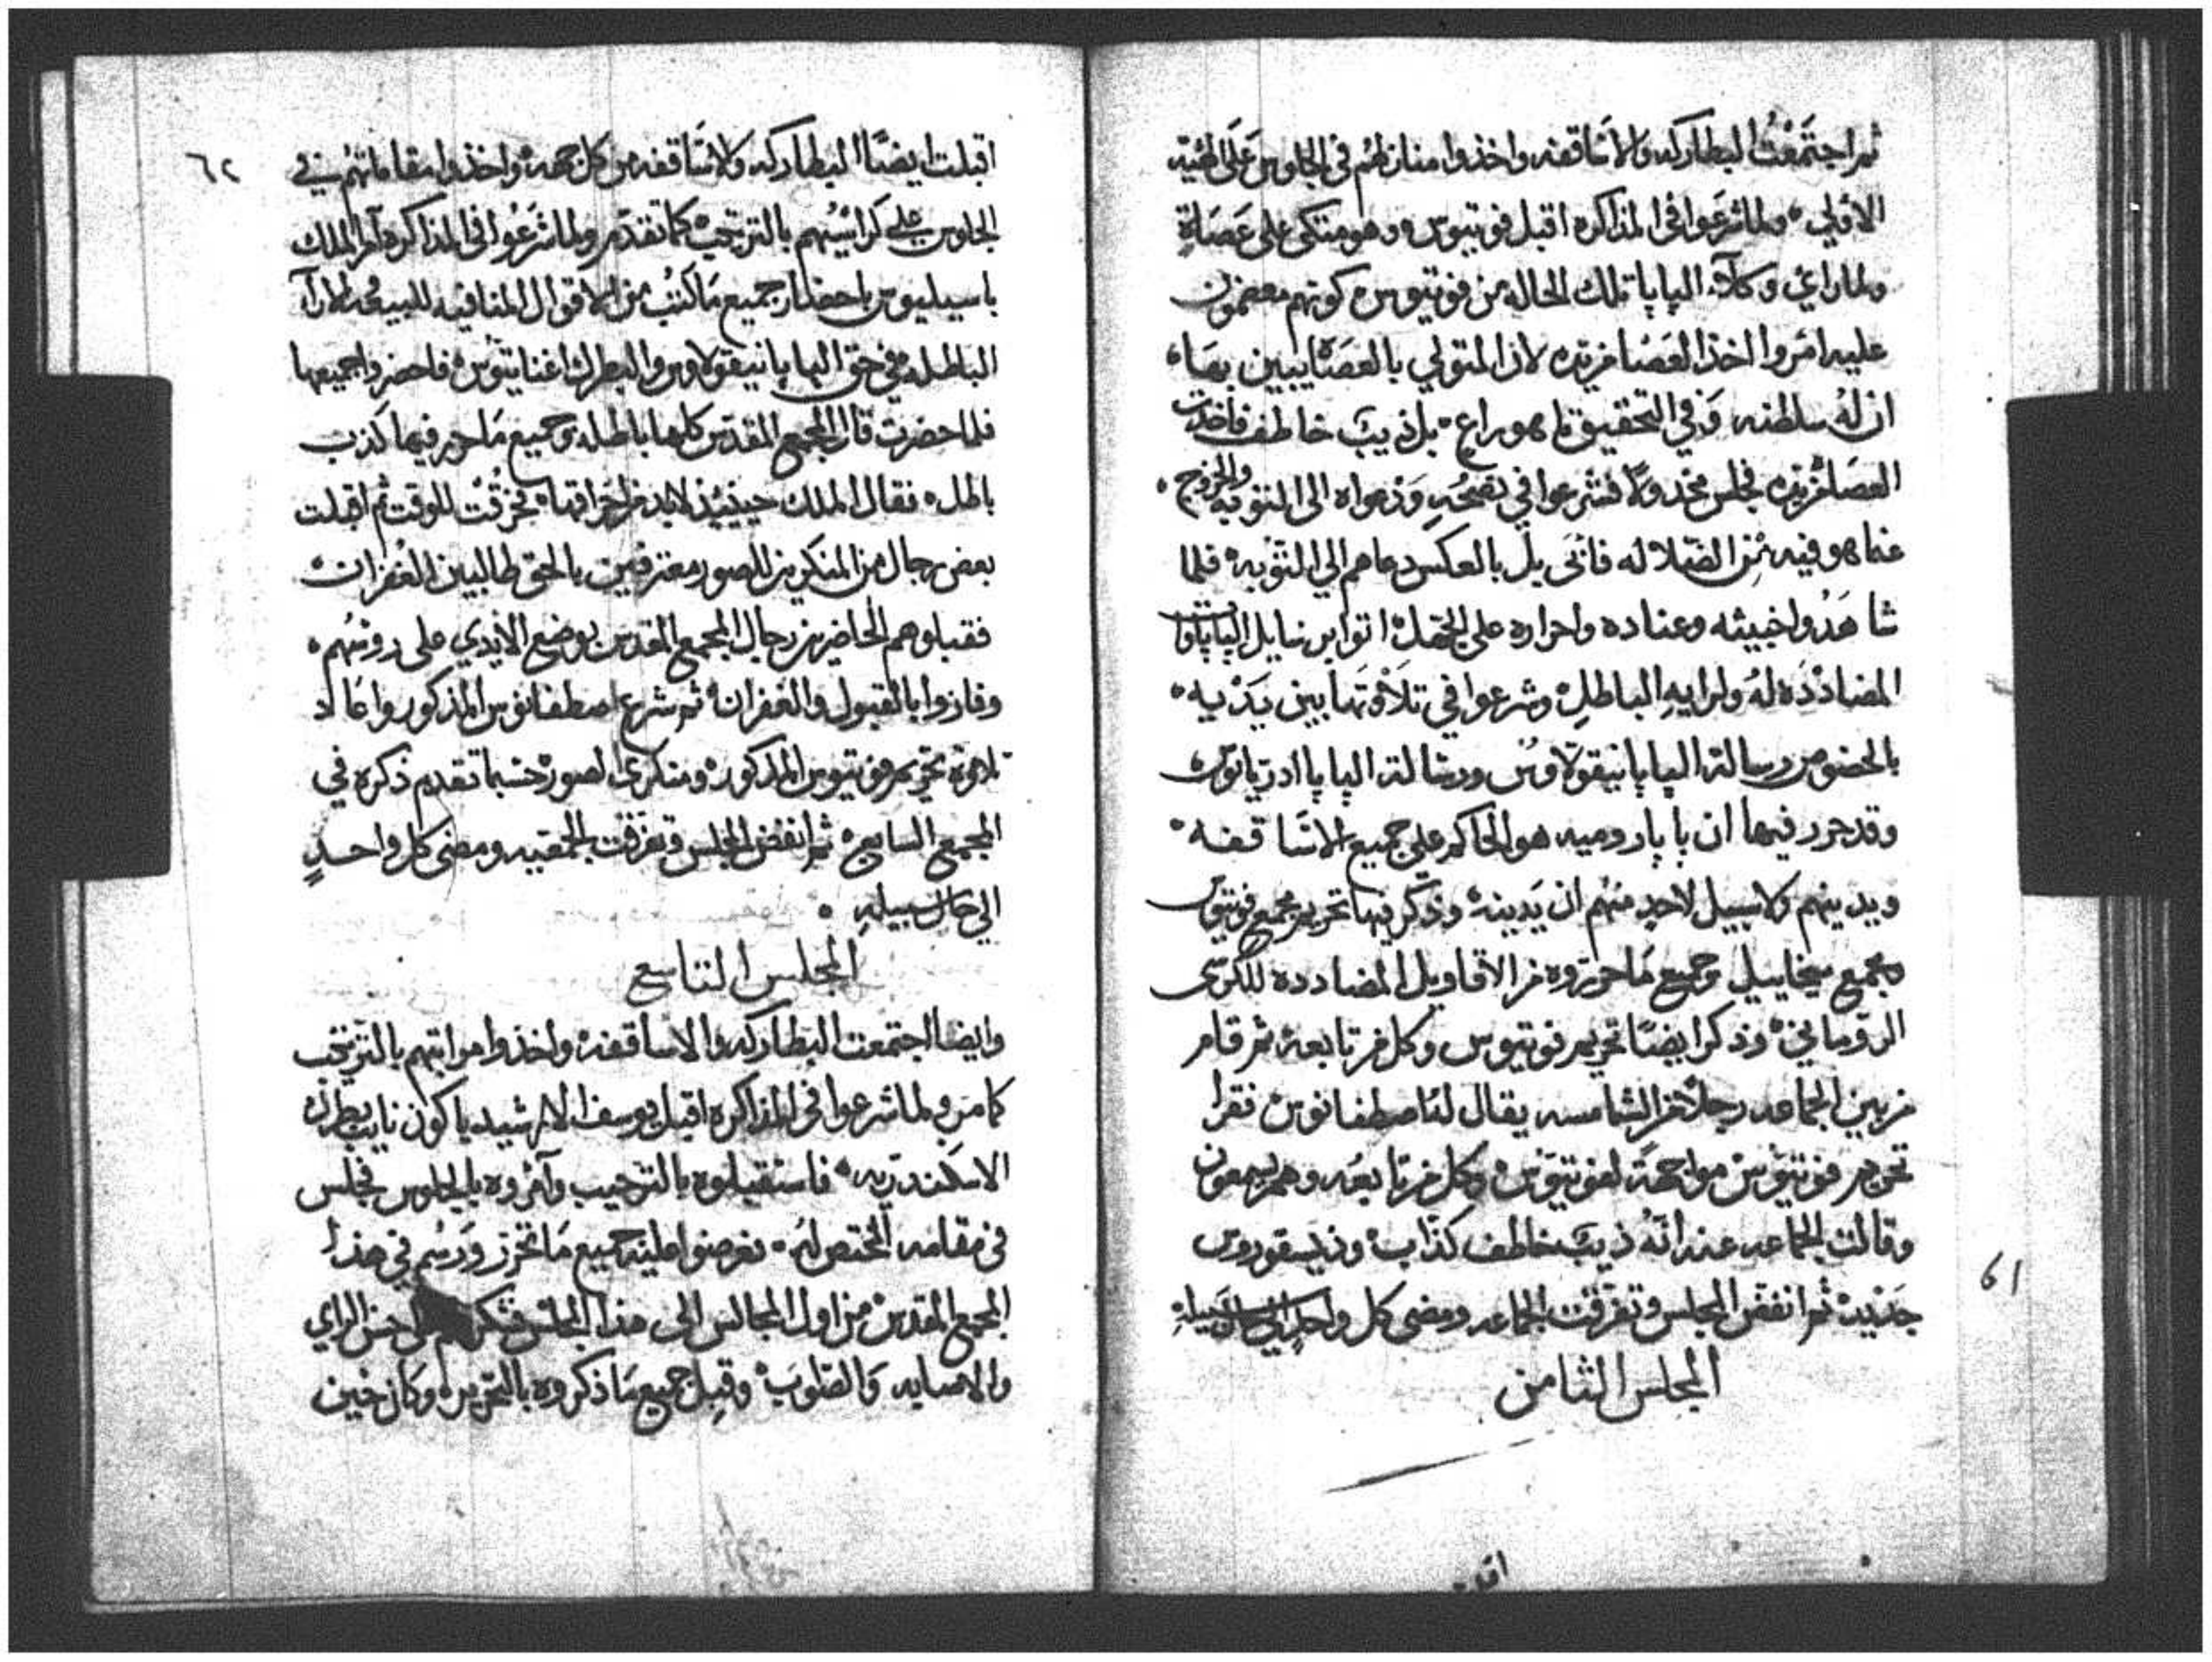 ثم اجتمعت البطاركه والاساقفه واخذوا منازلهم في الجلوس على
الاولي ولما شرعوا في المذاكره اقبل فوتيوس وهو متكى على عصاة
ولما راي وكلآء الپاپا تلك الحاله من فوتيوس كونهم
عليه امروا اخذ العصا من يده لان المتولي بالعصا يبين بها
ان له سلطنه وفي التحقيق ما هو براع بل ذيب خاطف فاخذت
العصا من يده فجلس مخذولا فشرعوا في نصحه ودعواه الى التوبه والخروج
عما هو فيه من الضلاله فابى بل بالعكس دعاهم الي التوبه فلما
شاهدوا خبيثه وعناده واصراره على اتوا برسايل الپاپاوات
المضادده له ولرايه الباطل وشرعوا في تلاوتها بين يديه
بالخصوص رسالة الپاپا نيقولاوس ورسالة الپاپا ادريانوس
وقد حرر فيها ان پاپا روميه هو الحاكم علي جميع الاساقفه
ويدينهم ولا سبيل لاحد منهم ان يدينه وذكر فيها تحريم مجمع فوتيوس
ومجمع ميخاييل وجميع ما حرروه من الاقاويل المضادده للكرسى
الروماني وذكر ايضا تحريم فوتيوس وكل من تابعه ثم قام
من بين الجماعه رجلا من الشمامسه يقال له اصطفانوس فقرا
تحريم فوتيوس مواجهة لفوتيوس وكل من تابعه وهم يسمعون
وقالت الجماعه عنه انه ذيب خاطف كذاب وذيسقوروس
جديد ثم انفض المجلس وتفرقت الجماعه ومضى كل واحد الي حال سبيله
المجلس الثامن
٦١
٦٢
اقبلت ايضا البطاركه والاساقفه من كل جهه واخذوا مقاماتهم في
الجلوس علي كراسيهم بالترتيب كما تقدم ولما شرعوا في المذاكره امر الملك
باسيليوس باحضار جميع ما كتب من الاقوال المنافيه للبيعه والارآ
الباطله في حق الپاپا نيقولاوس والبطرك اغناتيوس فاحضروا جميعها
فلما حضرت قال المجمع المقدس كلها باطله وجميع ما حرر فيها كذب
باطل فقال الملك حينيذ لابد من احراقها فحرقت للوقت ثم اقبلت
بعض رجال من المنكرين للصور معترفين بالحق طالبين الغفران
فقبلوهم الحاضرين رجال المجمع المقدس بوضع الايدي على روسهم
وفازوا بالقبول والغفران ثم شرع اصطفانوس المذكور واعاد
تلاوة تحريم فوتيوس المذكور ومنكرى الصور حسبما تقدم ذكره في
المجمع السابع ثم انفض المجلس وتفرقت الجمعيه ومضى كل واحد
الي حال سبيله
المجلس التاسع
وايضا اجتمعت البطاركه والاساقفه واخذوا مراتبهم بالترتيب
كما مر ولما شرعوا في المذاكره اقبل يوسف الارشيدياكون نايب بطرك
الاسكندريه فاستقبلوه بالترحيب وآمروه بالجلوس فجلس
في مقامه المختص له فعرضوا عليه جميع ما تحرر ورسم في هذا
المجمع المقدس من اول المجالس الى هذا المجلس حسن الراي
والاصابه والصواب وقبل جميع ما ذكروه بالتحرير وكان حين